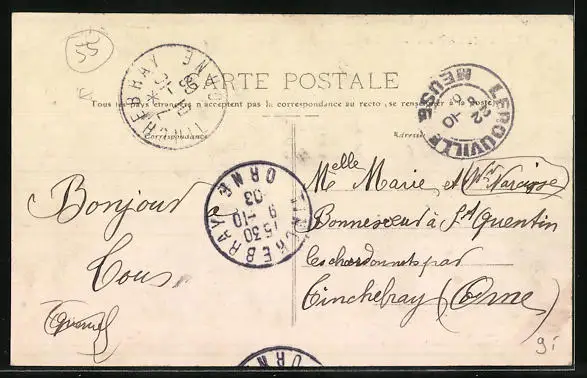 55
CARTE POSTALE
Tous les pays étrangers n'acceptent pas la correspondance au recto, se renseigner à la poste
Correspondance
Adresse
TINCHEBRAY
ORNE
LEROUVILLE
MEUSE
TINCHEBRAY
15 30
9 -10
03
ORNE
Bonjour à
Tous
Melle Marie et Narcisse
Bonnesoeur à St Quentin
les chardonnets par
Tinchebray (Orne)
ORNE